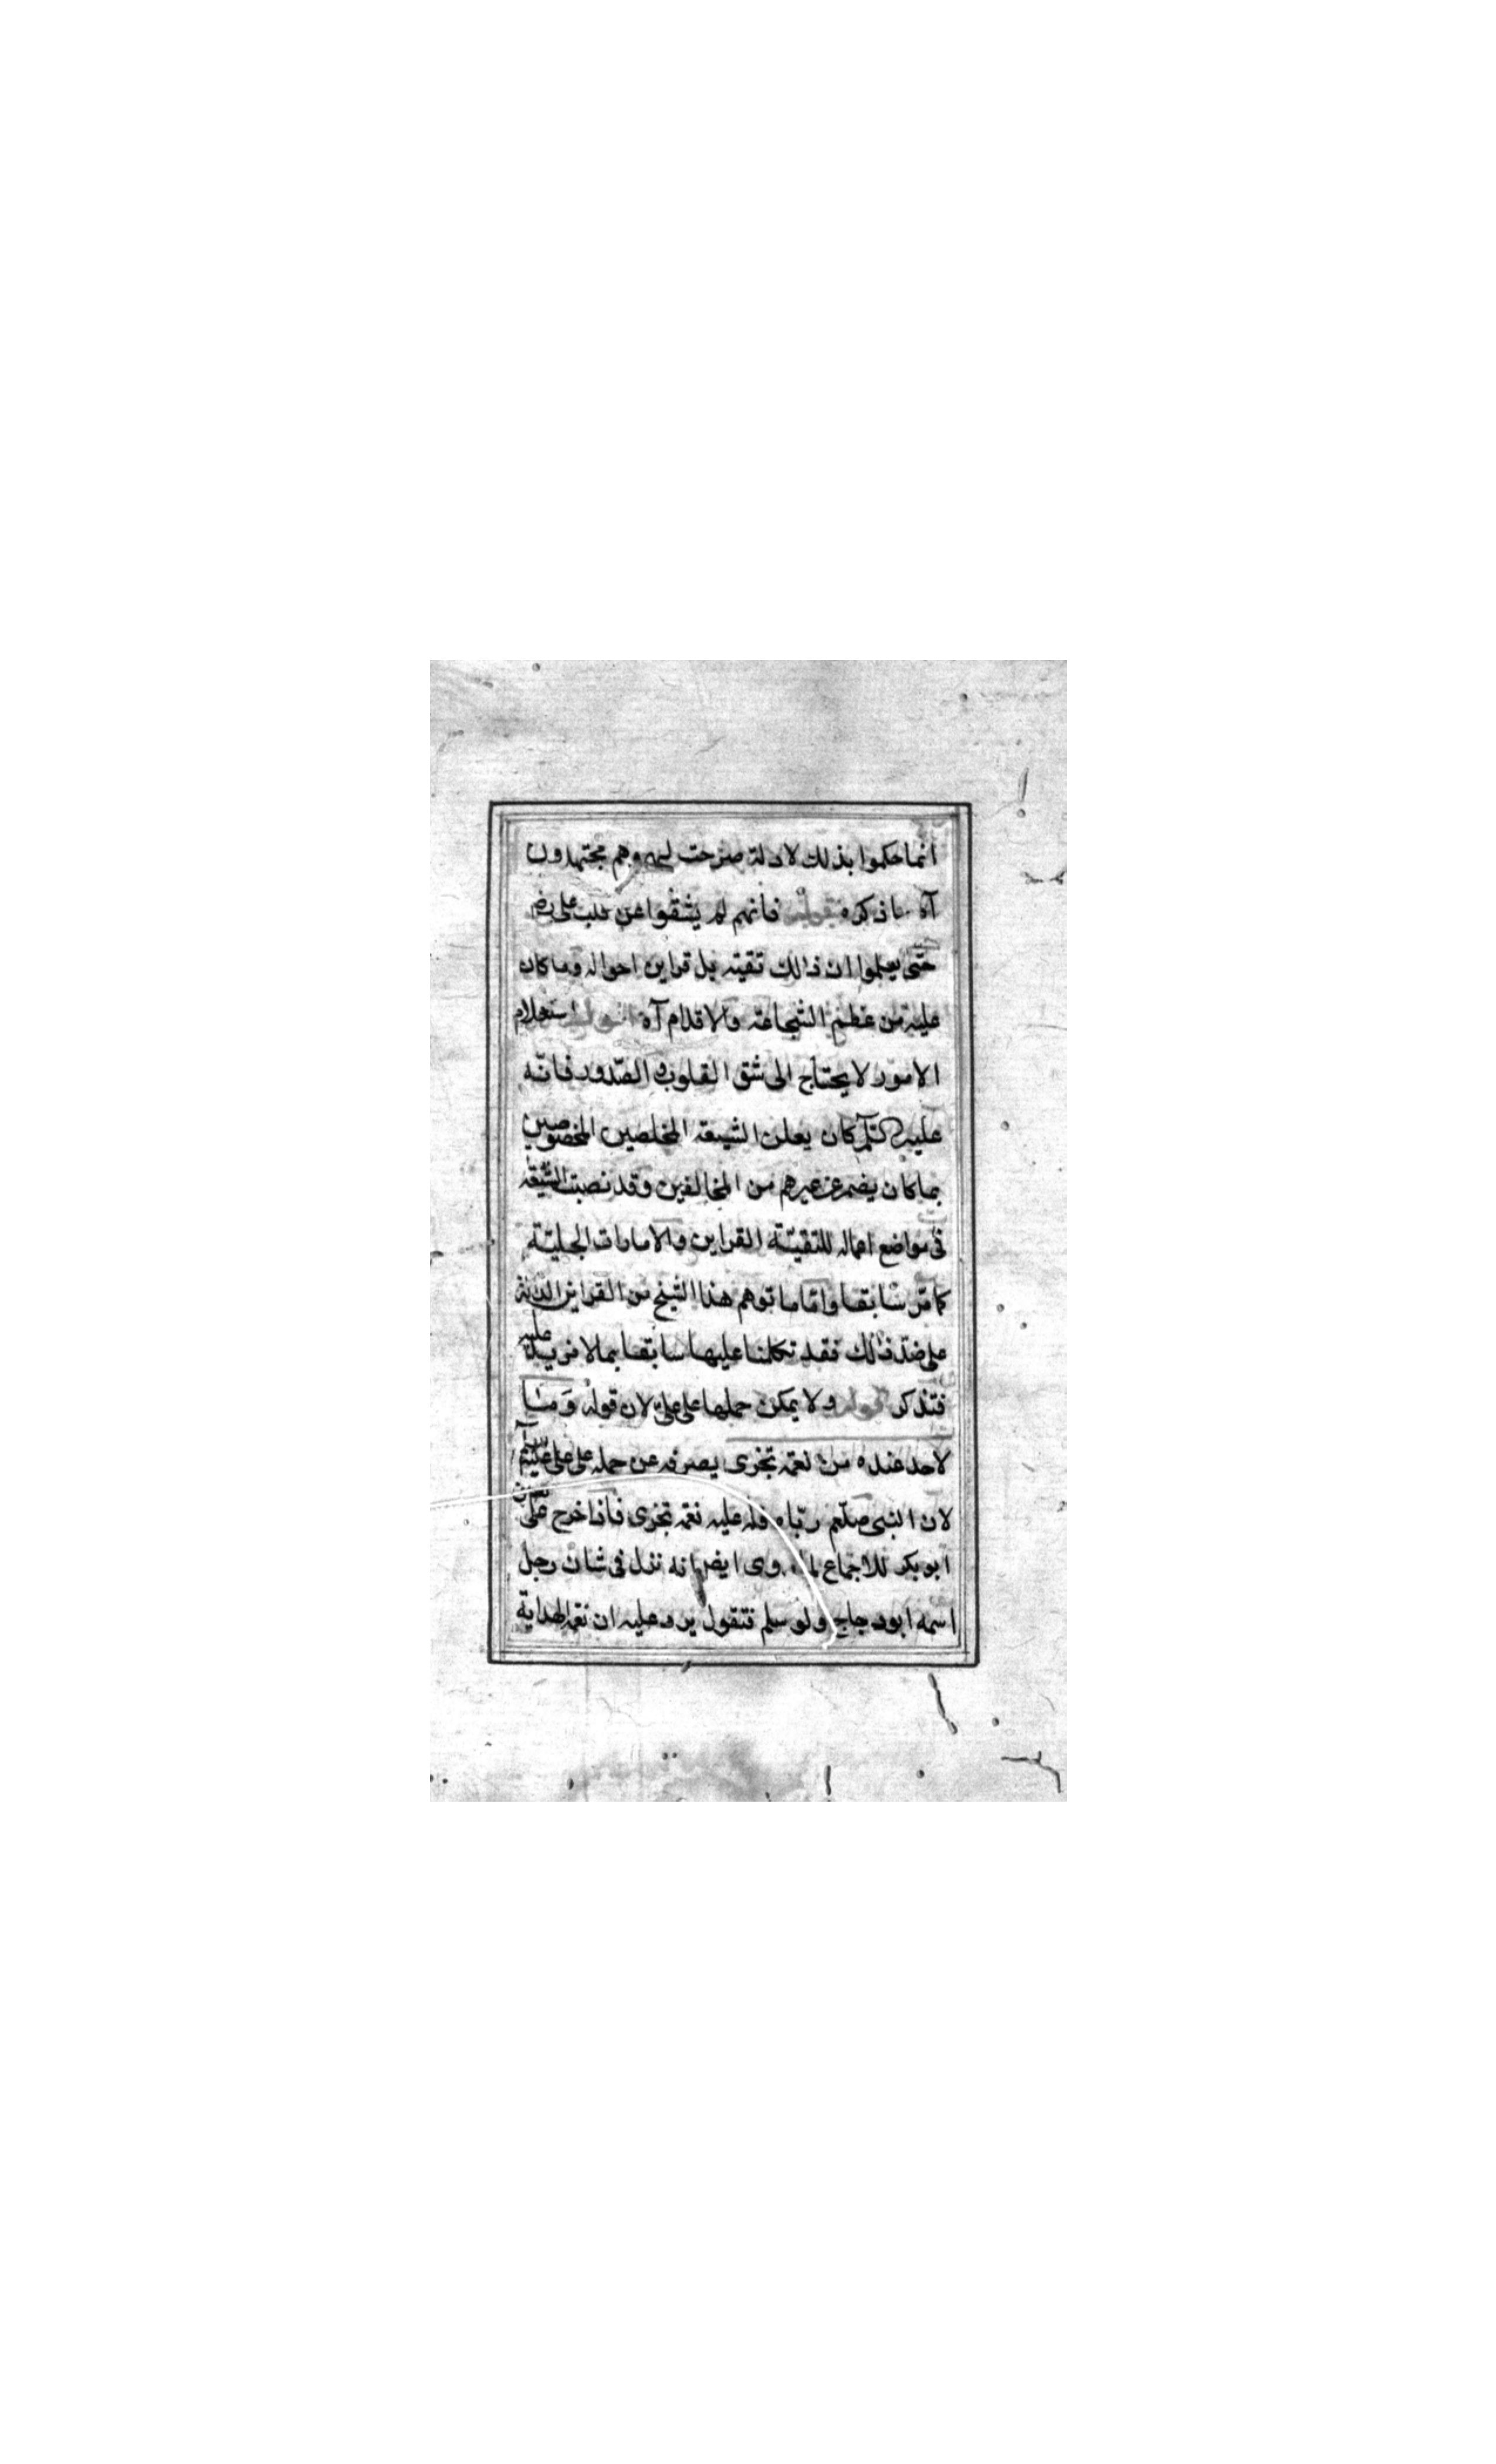 انما حكموا بذلك لادلة صرحت لهم وهم مجتهدون
آه ما ذكره قوله فانهم لم يشقوا عن قلب على رضى
حتى يعلموا ان ذالك تقيته بل قراين احواله وما كان
عليه من عظيم الشجاعة والاقدام آه اقول استعلام
الامور لا يحتاج الى شق القلوب والصدور فانّه
عليه كان يعلن الشيعة المخلصين المخصوصين
بما كان يضمر عن غيرهم من المخالفين وقد نصبت الشيعة
فى مواضع اعماله للتقيّة القراين والامارات الجليّة
كما مرّ سابقا وامّا ما توهم هذا الشيخ من القراين الدالة
على ضدّ ذالك فقد تكلمنا عليها سابقا بما لا مزيد عليه
فتذكر قوله ولا يمكن حملها على علىّ لان قوله وَمَا
لاحد عنده من نعمة تجزى يصرفه عن حمله على على
لان النبى صلعم ربّاه فله عليه نعمة تجزى فاذا خرج على تعين
ابو بكر للاجماع روى ايضا انه نزل فى شان رجل
اسمه ابو دجاج ولو سلم فنقول يرد عليه ان نعمة الهداية